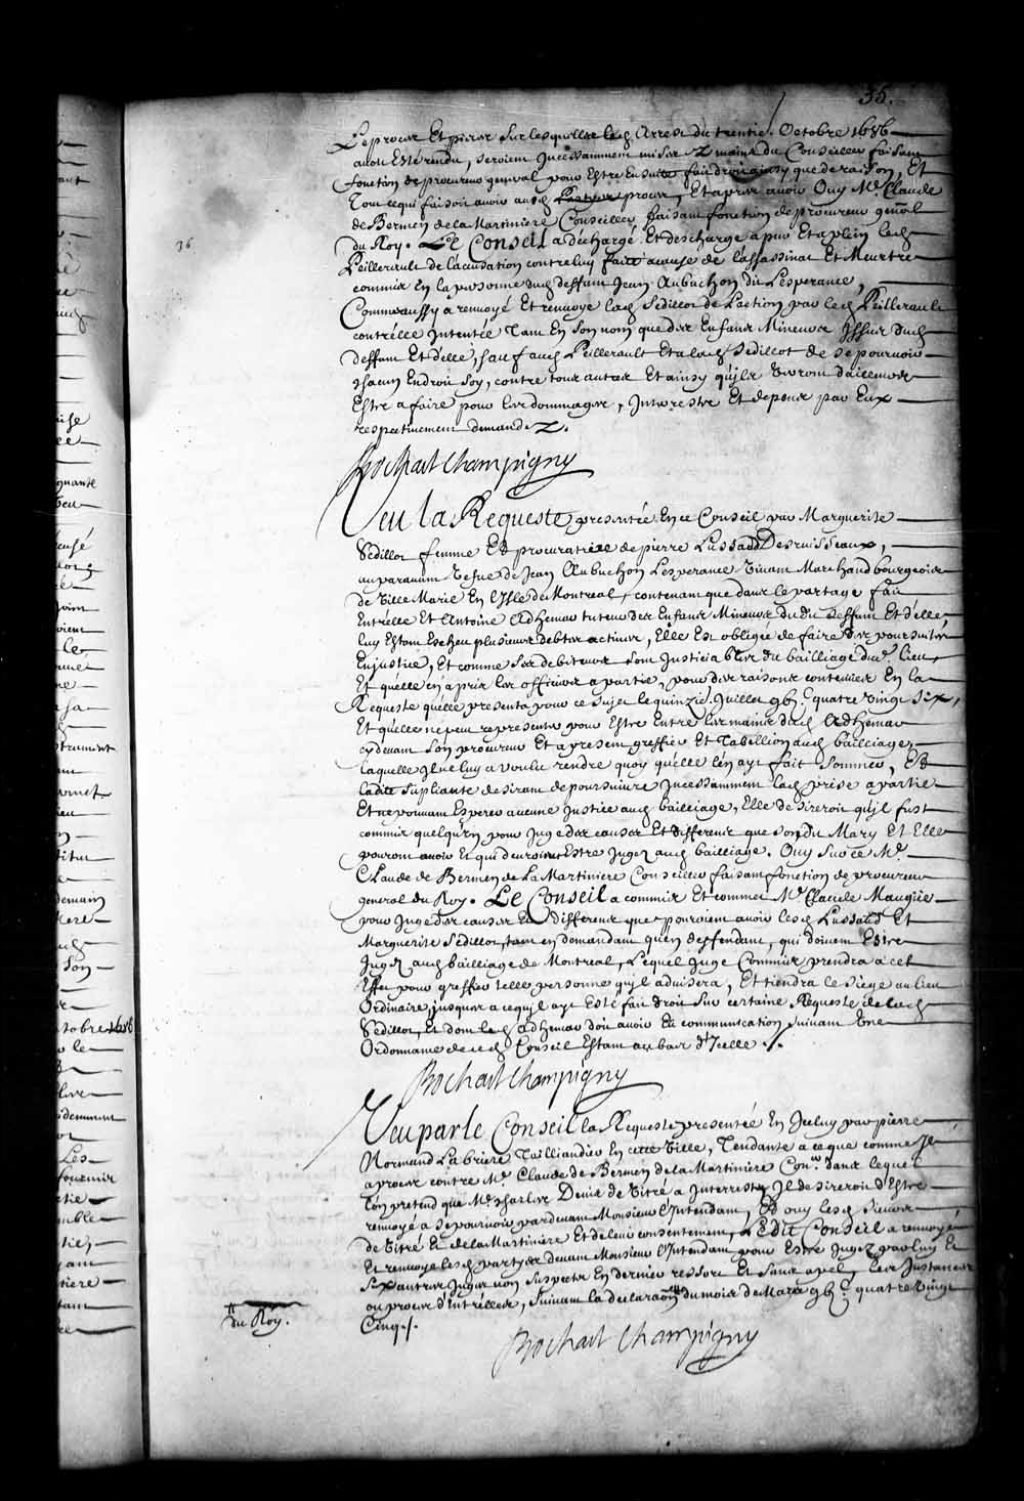 35.
Le procez Et pieces Sur lesquelles led. Arrest du trentie. Octobre 1686
avoit Esté rendu, seroient Incessamment mises Ez mains du Conseiller faisant
fonction de procureur general pour Estre Ensuitte fait droit ainsy que de raison, Et
Tout ce qui faisoit avoir aud. procez, Et apres avoir Ouy Me. Claude
de Bermen de la Martiniere Conseiller faisant fonction de procureur gnal
du Roy. Le Conseil a déchargé Et descharge a pur Et a plein led.
Peillerault de l'accusation contre luy faite a cause de l'assassinat Et Meurtre
commis En la personne dud. deffunt Jean Aubuchon dit Lesperance,
Comme aussy a renvoyé Et renvoye lad. Sedillot de L'action par led. Peillerault
contr'elle Intentée Tant En son nom que des Enfans Mineurs Issus dud.
deffunt Et d'elle, sauf aud. Peillerault Et a lad. Sedillot de se pourvoir
chacun Endroit soy, contre tous autres Et ainsy qu'ils verront d'ailleurs
Estre a faire pour les dommages, Interestz Et depens par Eux
respectivement demandez.
Bochart Champigny
Veu la Requeste presentée En ce Conseil par Marguerite
Sedillot femme Et procuratrice de pierre Lussaud Desruisseaux,
auparavant Vefue de Jean Aubuchon Lesperance vivant Marchand bourgeois
de Ville Marie En l'Isle de Montreal, contenant que dans le partage fait
Entr'elle Et Antoine Adhemar tuteur des Enfans Mineurs dudit deffunt Et d'elle,
luy Estant Escheu plusieurs debtes actives, Elle Est obligée de faire des poursuites
En justice, Et comme ses debiteurs sont Justiciables du bailliage dud. lieu,
Et qu'elle en a pris les officiers a partie, pour des raisons contenües En la
Requeste quelle presenta pour ce sujet le quinzie. Juillet gbc. quatre vingt six,
Et qu'elle ne peut representer pour Estre Entre les mains dud. Adhemar
cydevant son procureur Et a present greffier Et Tabellion aud. bailliage,
laquelle Il ne luy a voulu rendre quoy qu'elle l'en ayt fait sommer, Et
ladite supliante desirant de poursuivre Incessamment lad. prise a partie
Et ne pouvant Esperer aucune Justice aud. bailliage, Elle desireroit qu'il fust
commis quelqu'un pour Juge des causes Et differens que sondit Mary Et Elle
pouront avoir Et qui devroient Estre Jugez aud. bailliage. Ouy sur ce Me.
Claude de Bermen de La Martiniere Conseiller faisant fonction de procureur
general du Roy. Le Conseil a commis Et commet Me. Claude Maugüe
pour Juge des causes Et differens que pouroient avoir lesd. Lussaud Et
Marguerite Sedillot, tant en demandant qu'en deffendant, qui doivent Estre
Jugez aud. bailliage de Montreal, Lequel Juge Commis prendra a cet
Effet pour greffier telle personne qu'il advisera, Et tiendra le Siege au lieu
Ordinaire, jusques a ce qu'il ayt Esté fait droit sur certaine Requeste de lad.
Sedillot, Et dont led. Adhemar doit avoir Eu communication suivant Une
Ordonnance de ced. Conseil Estant au bas d'Icelle ./.
Bochart Champigny
Veu par le Conseil la Requeste presentée En Iceluy par pierre
Normand Labriere Taillandier En cette Ville, Tendante a ce que comme Il a
a procez contre Me. Claude de Bermen de la Martiniere Conr. dans lequel
l'on pretend que Me. Charles Denis de Vitré a Interrest, Il desireroit d'Estre
renvoyé a se pourvoir pardevant Monsieur l'Intendant, Et ouy lesd. Sieurs
de Vitré Et de la Martiniere Et de leur consentement, Ledit Conseil a renvoyé
Et renvoye lesd. partyes devant Monsieur l'Intendant pour Estre Jugez par luy Et
six autres Juges non suspects En dernier ressort Et sans apel, leur Instances
ou procez d'Entr'elles, suivant la declaraon du mois de Mars gbc. quatre vingt
Cinq ./.
du Roy.
Bochart Champigny